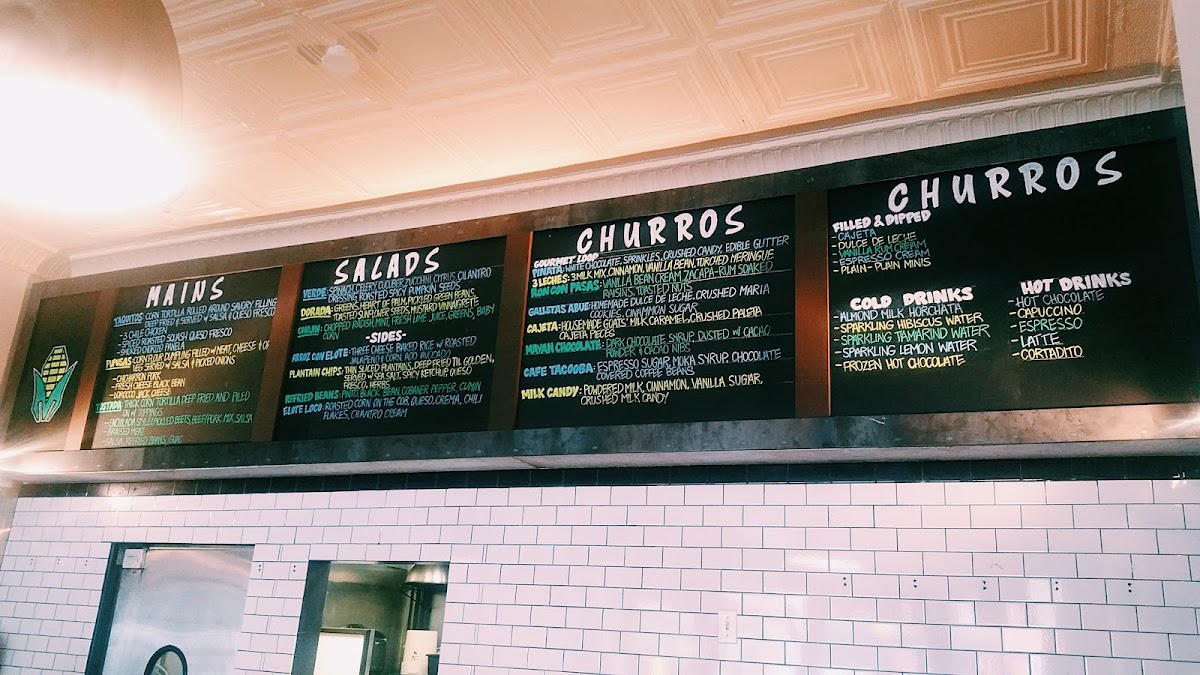 MAINS
TAQUITOS: CORN TORTILLA ROLLED AROUND SAVORY FILLING
DEEP FRIED & SERVED W/ SALSA & QUESO FRESCO
- 3 CHILE CHICKEN
- SPICED ROASTED SQUASH QUESO FRESCO
- SMOKED CHORIZO PANELA
PUPUSAS: CORN FLOUR DUMPLING FILLED W/ MEAT, CHEESE & OR
VEG SERVED W/ SALSA & PICKED ONIONS
- CHICHARRON PORK
- FRESH CHEESE BLACK BEAN
- LOROCO JACK CHEESE
TOSTADA: THICK CORN TORTILLA DEEP FRIED AND PILED
ON W/ TOPPINGS
- ENCHILADA STYLE PICKLED BEETS, BEEF/PORK MIX, SALSA
- BRAISED MEAT
- SALSA, REFRIED BEANS, GUAC
SALADS
VERDE: CELERY, CUCUMBER, ZUCCHINI, CITRUS, CILANTRO
DRESSING, ROASTED SPICY PUMPKIN SEEDS
DORADA: GREENS, HEART OF PALM, PICKLED GREEN BEANS,
TOASTED SUNFLOWER SEEDS, MUSTARD VINAIGRETTE
CHOPPED RADISH, MINT, FRESH LIME JUICE, GREENS, BABY
CORN
-SIDES-
ARROZ CON ELOTE: THREE CHEESE BAKED RICE W/ ROASTED
JALAPEÑO & CORN ADD AVOCADO
PLANTAIN CHIPS: THIN SLICED PLANTAINS, DEEP FRIED TIL GOLDEN,
SERVED W/ SEA SALT, SPICY KETCHUP, QUESO
FRESCO, HERBS
REFRIED BEANS: PINTO, BLACK BEAN, COBANER PEPPER, CUMIN
ELOTE LOCO: ROASTED CORN ON THE COB, QUESO, CREMA, CHILI
FLAKES, CILANTRO CREAM
CHURROS
GOURMET LOOP
PIÑATA: WHITE CHOCOLATE, SPRINKLES, CRUSHED CANDY, EDIBLE GLITTER
3 LECHES: 3 MILK MIX, CINNAMON, VANILLA BEAN, TORCHED MERINGUE
RON CON PASAS: VANILLA BEAN CREAM, ZACAPA-RUM SOAKED
RAISINS, TOASTED NUTS
GALLETAS ABUE: HOMEMADE DULCE DE LECHE, CRUSHED MARIA
COOKIES, CINNAMON SUGAR
CAJETA: HOUSEMADE GOATS' MILK CARAMEL, CRUSHED PALETA
CAJETA PIECES
MAYAN CHOCOLATE: DARK CHOCOLATE SYRUP, DUSTED W/ CACAO
POWDER & CACAO NIBS
CAFE TACOOBA: ESPRESSO SUGAR MOKA SYRUP, CHOCOLATE
COVERED COFFEE BEANS
MILK CANDY: POWDERED MILK, CINNAMON, VANILLA SUGAR,
CRUSHED MILK CANDY
CHURROS
FILLED & DIPPED
- CAJETA
- DULCE DE LECHE
- VANILLA RUM CREAM
- ESPRESSO CREAM
- PLAIN - PLAIN MINIS
COLD DRINKS
- ALMOND MILK HORCHATA
- SPARKLING HIBISCUS WATER
- SPARKLING TAMARIND WATER
- SPARKLING LEMON WATER
- FROZEN HOT CHOCOLATE
HOT DRINKS
- HOT CHOCOLATE
- CAPUCCINO
- ESPRESSO
- LATTE
- CORTADITO